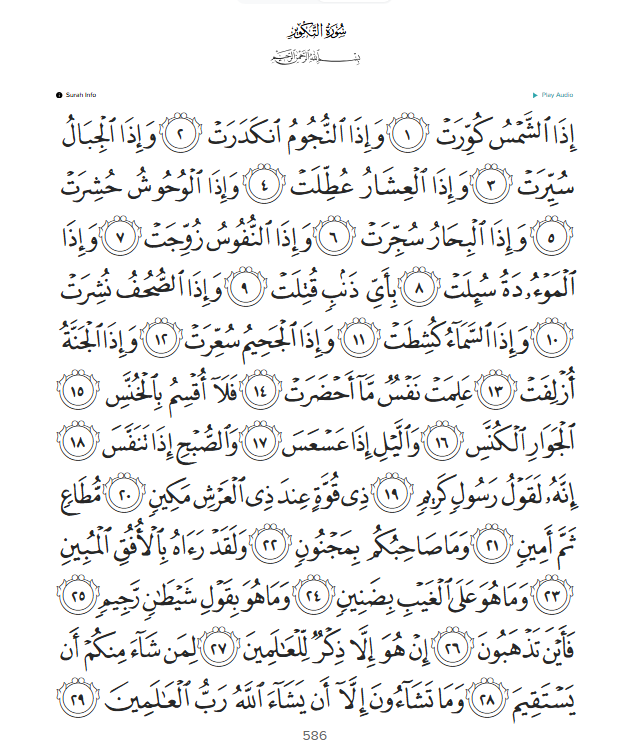 سُورَةُ التَّكْوِيرِ
بِسْمِ اللَّهِ الرَّحْمَٰنِ الرَّحِيمِ
Surah Info
Play Audio
إِذَا ٱلشَّمْسُ كُوِّرَتْ ١ وَإِذَا ٱلنُّجُومُ ٱنكَدَرَتْ ٢ وَإِذَا ٱلْجِبَالُ
سُيِّرَتْ ٣ وَإِذَا ٱلْعِشَارُ عُطِّلَتْ ٤ وَإِذَا ٱلْوُحُوشُ حُشِرَتْ
٥ وَإِذَا ٱلْبِحَارُ سُجِّرَتْ ٦ وَإِذَا ٱلنُّفُوسُ زُوِّجَتْ ٧ وَإِذَا
ٱلْمَوْءُۥدَةُ سُئِلَتْ ٨ بِأَىِّ ذَنۢبٍ قُتِلَتْ ٩ وَإِذَا ٱلصُّحُفُ نُشِرَتْ
١٠ وَإِذَا ٱلسَّمَآءُ كُشِطَتْ ١١ وَإِذَا ٱلْجَحِيمُ سُعِّرَتْ ١٢ وَإِذَا ٱلْجَنَّةُ
أُزْلِفَتْ ١٣ عَلِمَتْ نَفْسٌ مَّآ أَحْضَرَتْ ١٤ فَلَآ أُقْسِمُ بِٱلْخُنَّسِ ١٥
ٱلْجَوَارِ ٱلْكُنَّسِ ١٦ وَٱلَّيْلِ إِذَا عَسْعَسَ ١٧ وَٱلصُّبْحِ إِذَا تَنَفَّسَ ١٨
إِنَّهُۥ لَقَوْلُ رَسُولٍ كَرِيمٍ ١٩ ذِى قُوَّةٍ عِندَ ذِى ٱلْعَرْشِ مَكِينٍ ٢٠ مُّطَاعٍ
ثَمَّ أَمِينٍ ٢١ وَمَا صَاحِبُكُم بِمَجْنُونٍ ٢٢ وَلَقَدْ رَءَاهُ بِٱلْأُفُقِ ٱلْمُبِينِ
٢٣ وَمَا هُوَ عَلَى ٱلْغَيْبِ بِضَنِينٍ ٢٤ وَمَا هُوَ بِقَوْلِ شَيْطَٰنٍ رَّجِيمٍ ٢٥
فَأَيْنَ تَذْهَبُونَ ٢٦ إِنْ هُوَ إِلَّا ذِكْرٌ لِّلْعَٰلَمِينَ ٢٧ لِمَن شَآءَ مِنكُمْ أَن
يَسْتَقِيمَ ٢٨ وَمَا تَشَآءُونَ إِلَّآ أَن يَشَآءَ ٱللَّهُ رَبُّ ٱلْعَٰلَمِينَ ٢٩
586